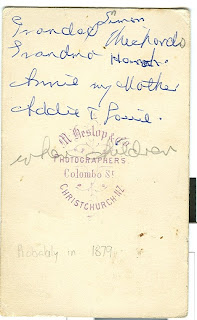 Grandad Simon
Grandma
Annie my Mother
Addie & Louie.
M. Heslop & Co.
PHOTOGRAPHERS
children
Colombo St.
CHRISTCHURCH NZ
Probably in 1879